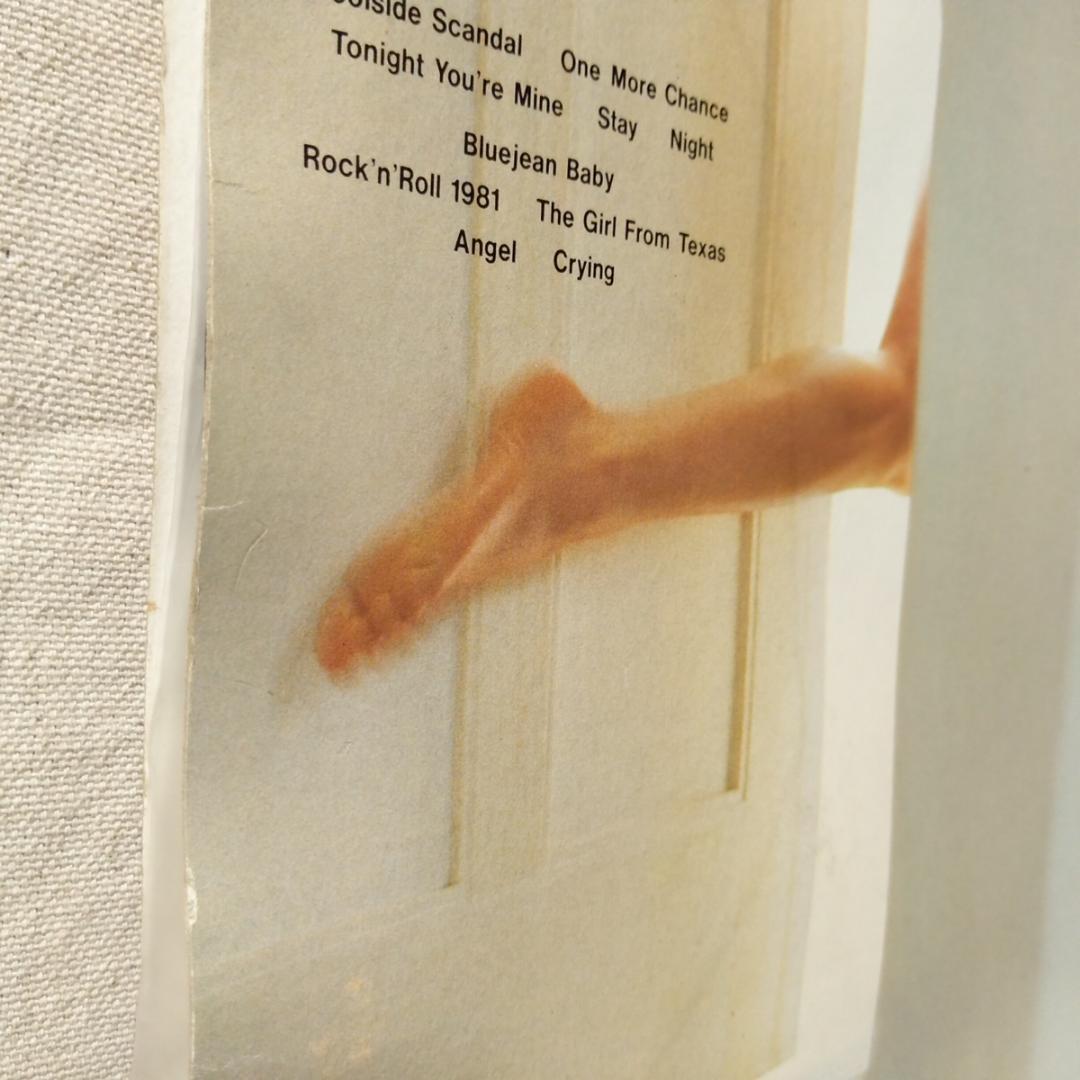 Scandal One More Chance
Tonight You're Mine Stay Night
Bluejean Baby
Rock'n'Roll 1981 The Girl From Texas
Angel Crying